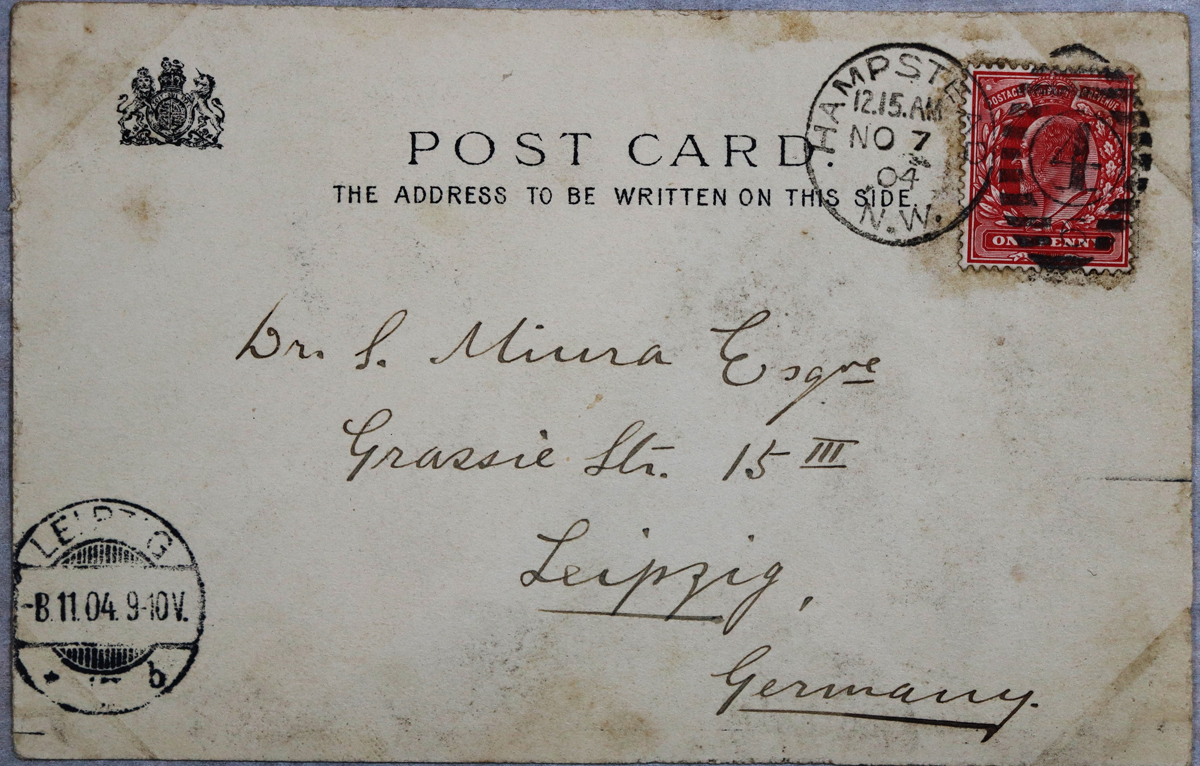 POST CARD.
THE ADDRESS TO BE WRITTEN ON THIS SIDE.
HAMPSTEAD
12.15.AM
NO 7
04
N.W.
POSTAGE REVENUE
ONE PENNY
Dr. S. Miura Esqre
Grassie Str. 15 III
Leipzig,
Germany.
LEIPZIG
-8.11.04. 9-10V.
* b